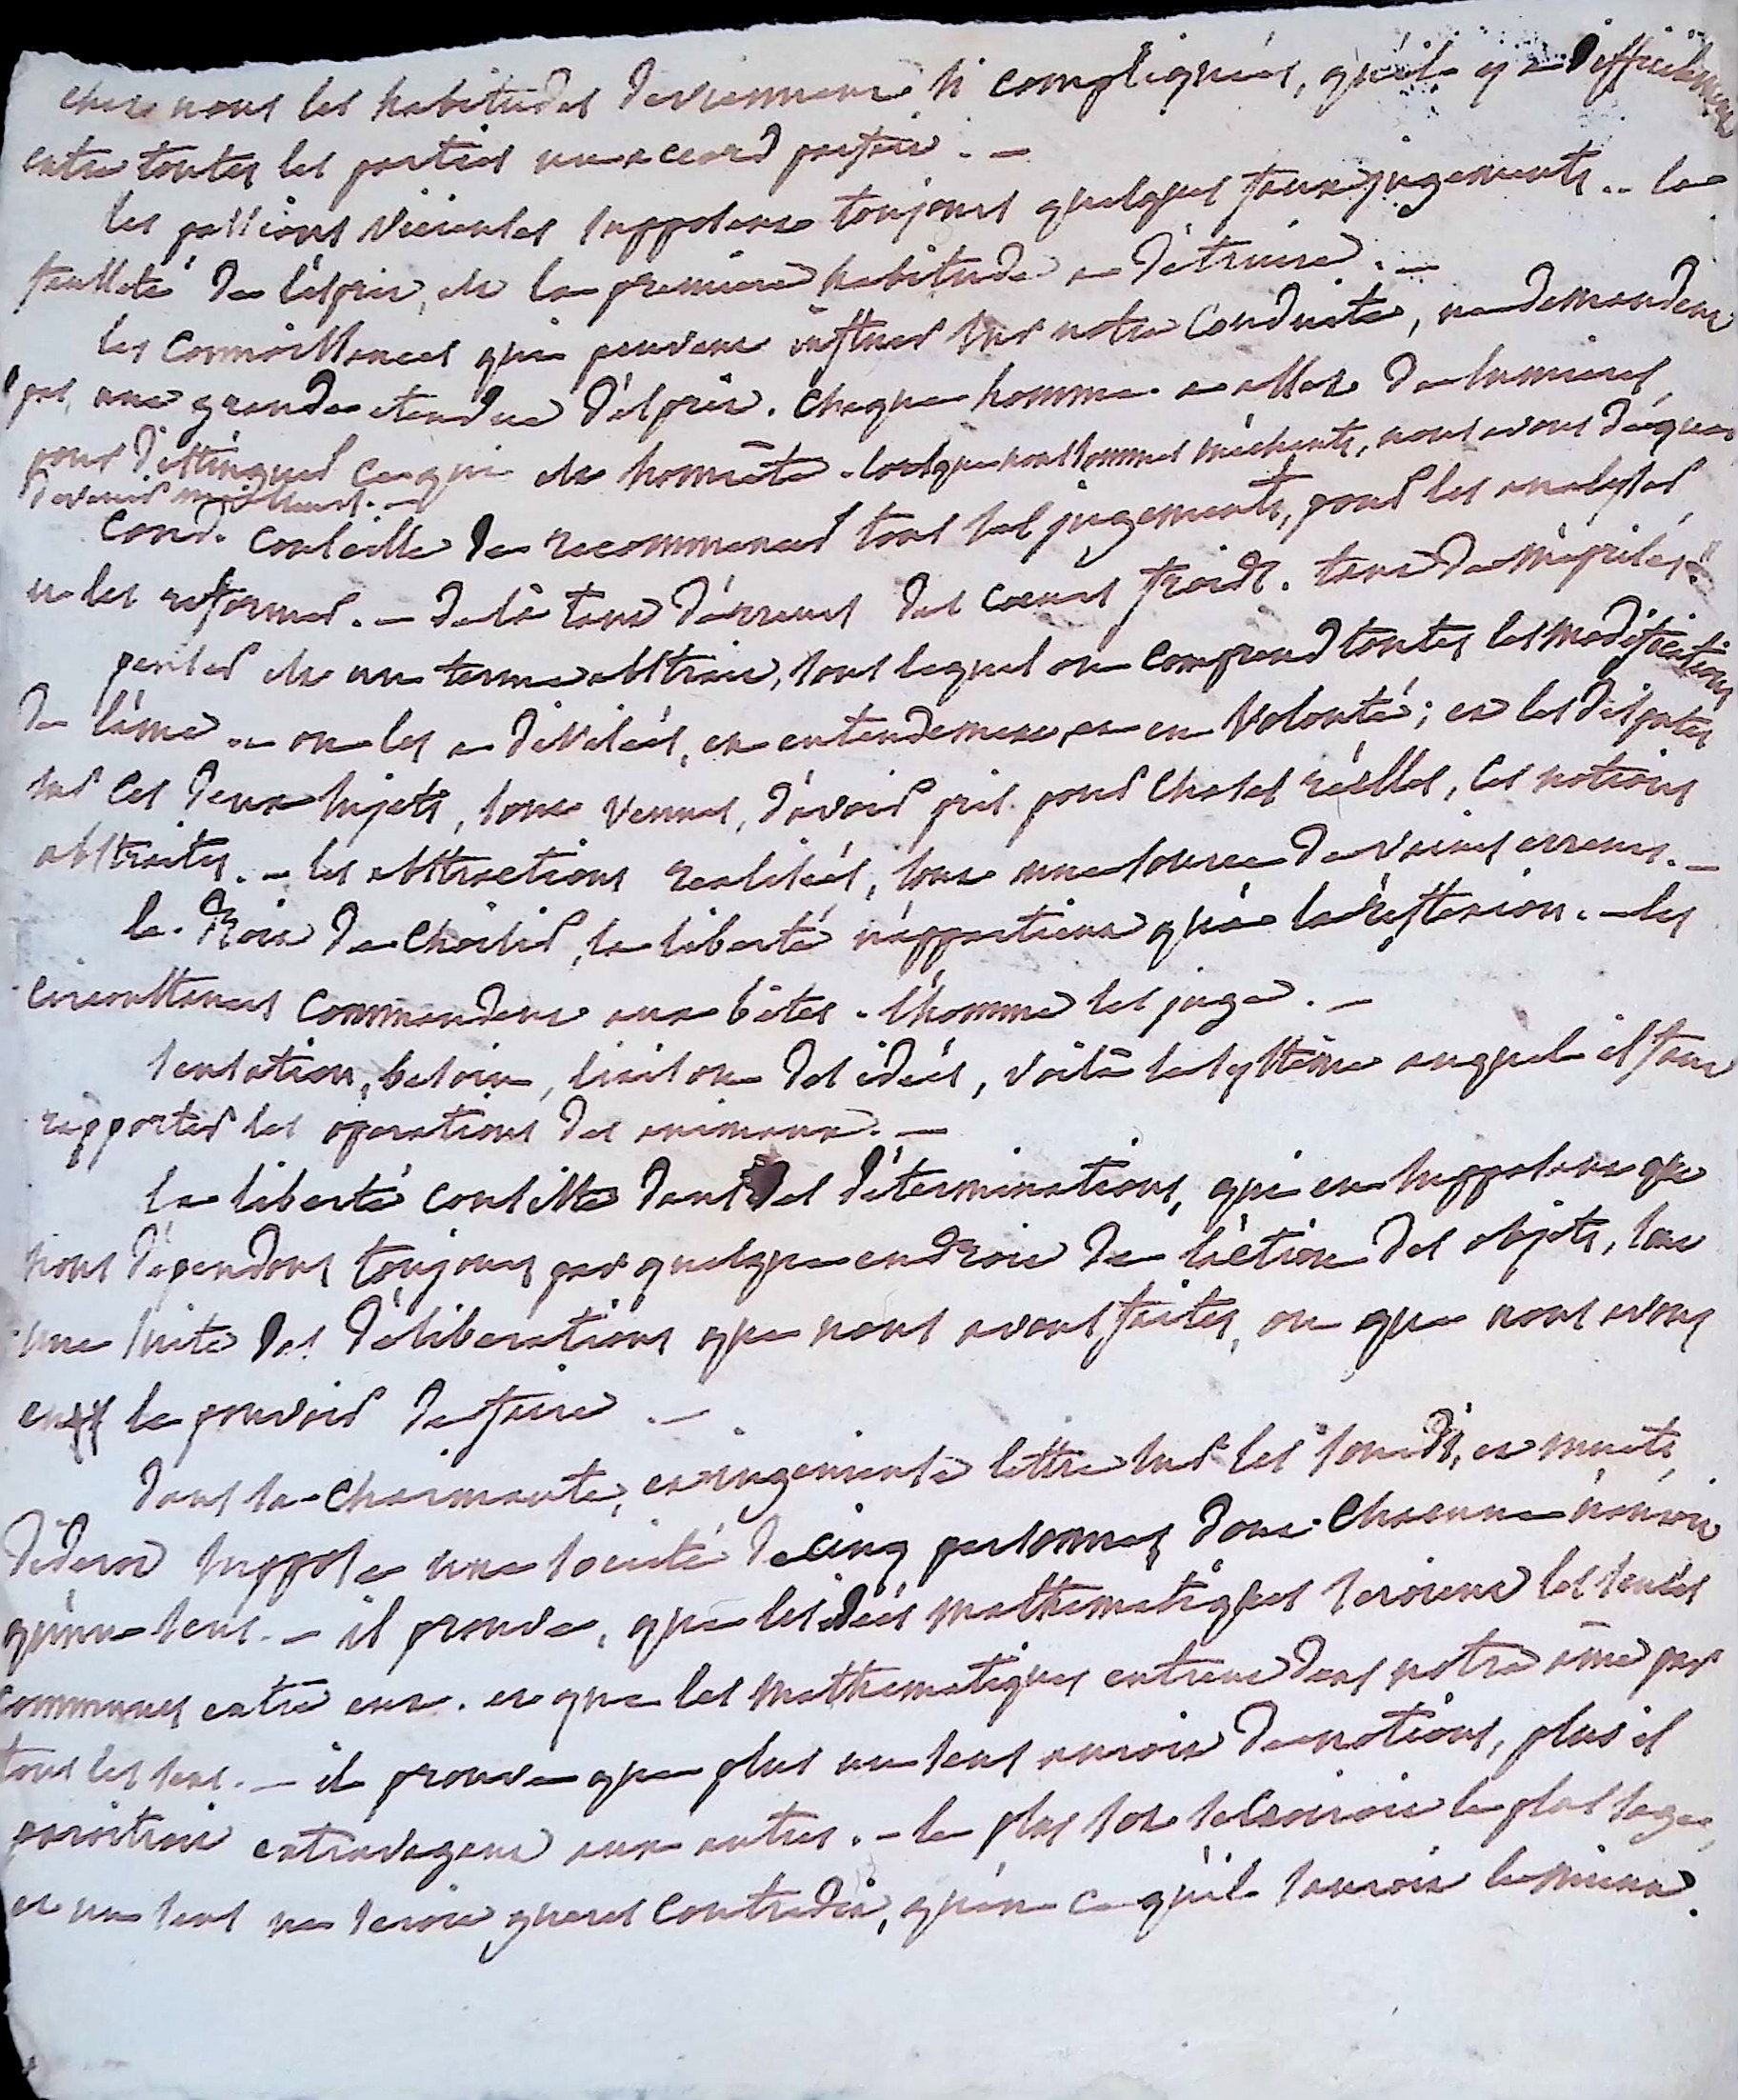 chez nous les habitudes deviennent si compliquées, qu'il y a difficilement
entre toutes les parties un accord parfait. —
les passions vicieuses supposent toujours quelques faux jugements.. la
fausseté de l'esprit, est la premiere habitude a détruire. —
les connoissances qui peuvent influer sur notre conduite, ne demandent
pas, une grande etendue d'esprit. chaque homme a assez de lumieres,
pour distinguer ce qui est honnête. lorsque nous sommes méchants, nous avons de quoi
devenir meilleurs. —
Cond. conseille de recommencer tous ses jugements, pour les analyser,
et les reformer. — de là tant d'erreurs des coeurs froids. tant de méprises
penser est un terme abstrait, sous lequel on comprend toutes les modifications
de l'âme. — on les a divisées, en entendement et en volonté; et les disputes
sur ces deux sujets, sont venues, d'avoir pris pour choses réelles, ces notions
abstraites. — les abstractions realisées, sont une source de vaines erreurs. —
le droit de choisir, la liberté n'appartient qu'à la réflexion. — les
circonstances commandent aux bêtes. l'homme les juge. —
sensation, besoin, liaison des idées, voilà le systême auquel il faut
rapporter les operations des animaux. —
la liberté consiste dans des déterminations, qui en supposant que
nous dépendons toujours par quelque endroit de l'action des objets, sont
une suite des déliberations que nous avons faites, ou que nous avons
eu le pouvoir de faire. —
dans sa charmante, et ingenieuse lettre sur les sourds, et muets,
diderot suppose une societé de cinq personnes dont chacune n'auroit
qu'un sens. — il prouve, que les idées mathematiques seroient les seules
communes entre eux. et que les mathematiques entrent dans notre âme par
tous les sens. — il prouve que plus un sens auroit de notions, plus il
paroitroit extravagant aux autres. — le plus sot se croiroit le plus sage,
et un sens ne seroit gueres contredit, qu'en ce qu'il sauroit le mieux.